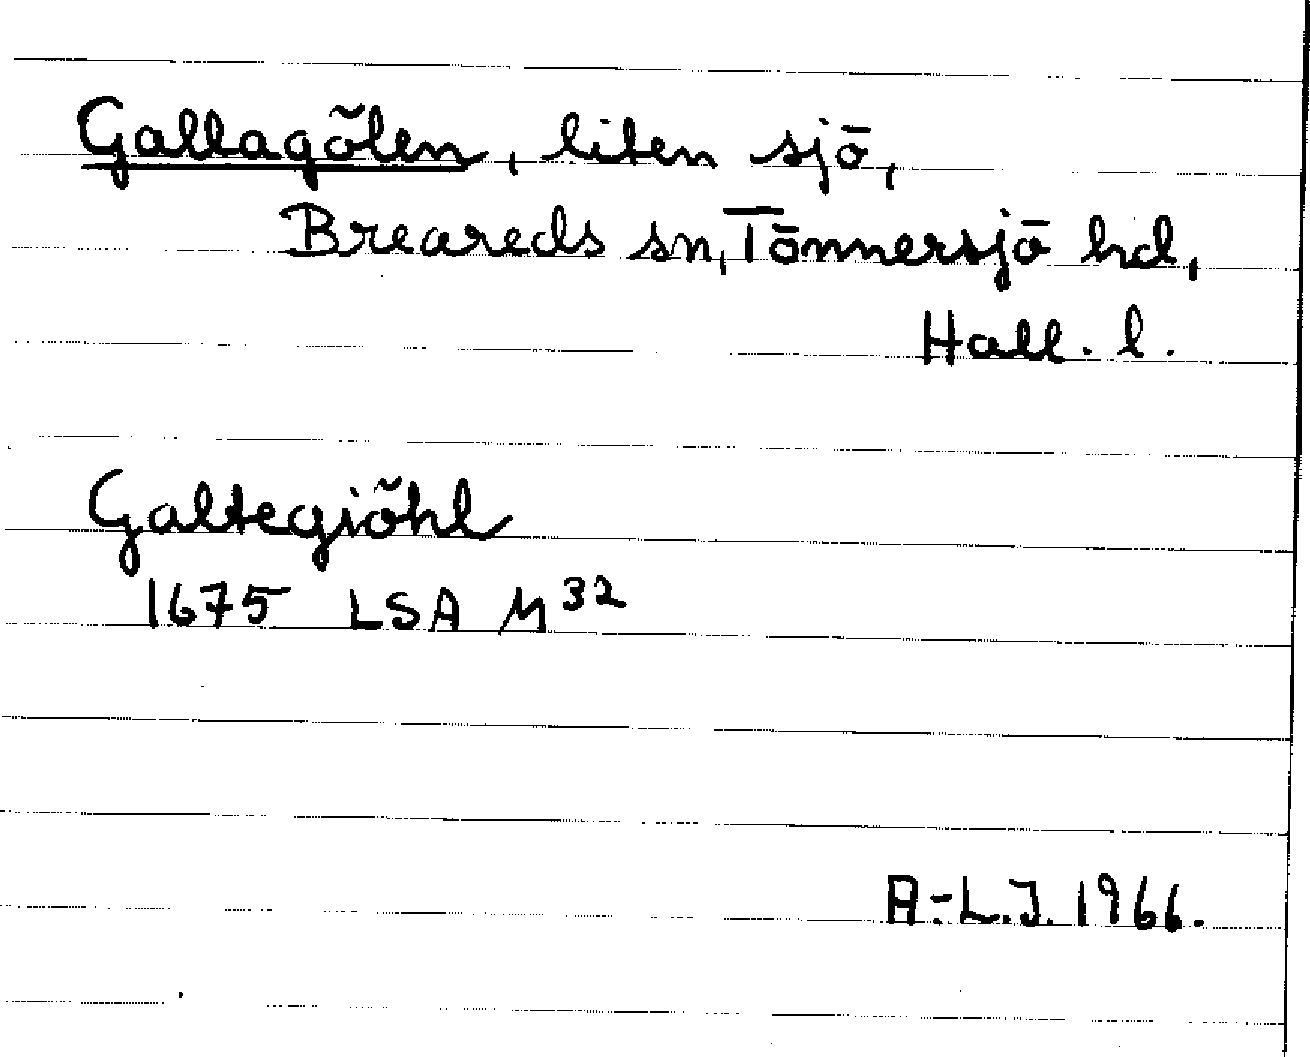 Gallagölen, liten sjö,
Breareds sn, Tönnersjö hd,
Hall. l.
Galtegiöhl
1675 LSA M 32
A-L.J. 1966.